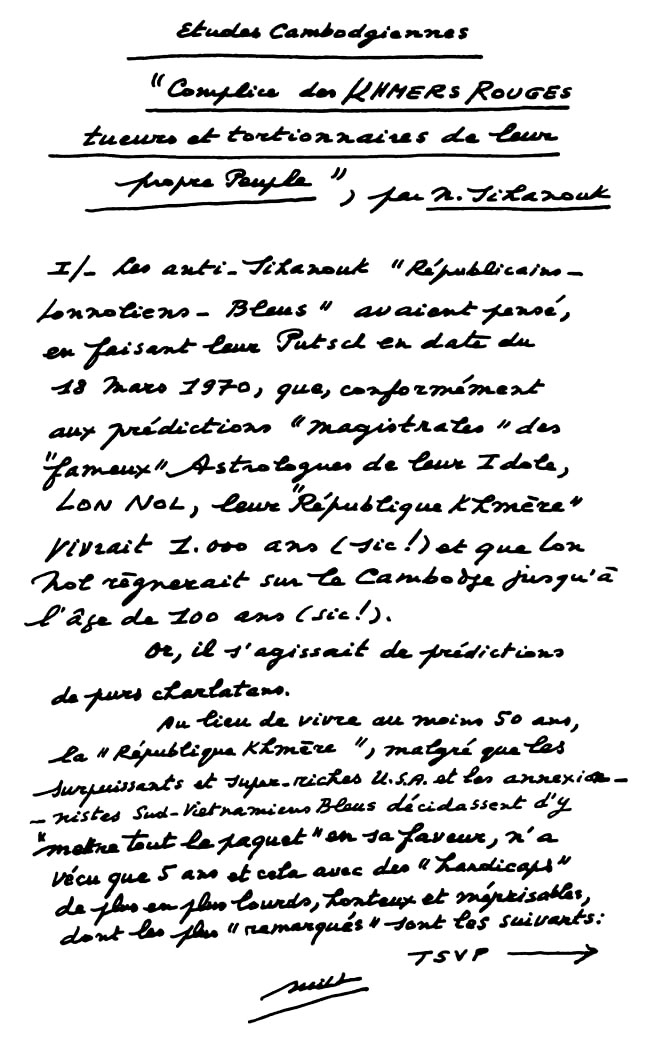 Etudes Cambodgiennes
"Complice des KHMERS ROUGES
tueurs et tortionnaires de leur
propre Peuple", par N. Sihanouk
I/- Les anti-Sihanouk "Républicains-
Lonnoliens-Bleus" avaient pensé,
en faisant leur Putsch en date du
18 Mars 1970, que, conformément
aux prédictions "magistrales" des
"fameux" Astrologues de leur Idole,
LON NOL, leur "République Khmère"
vivrait 1.000 ans (sic!) et que Lon
Nol règnerait sur le Cambodge jusqu'à
l'âge de 100 ans (sic!).
Or, il s'agissait de prédictions
de purs charlatans.
Au lieu de vivre au moins 50 ans,
la "République Khmère", malgré que les
surpuissants et super-riches U.S.A. et les annexio-
-nistes Sud-Vietnamiens Bleus décidassent d'y
"mettre tout le paquet" en sa faveur, n'a
vécu que 5 ans et cela avec des "handicaps"
de plus en plus lourds, honteux et méprisables,
dont les plus "remarqués" sont les suivants:
TSVP →